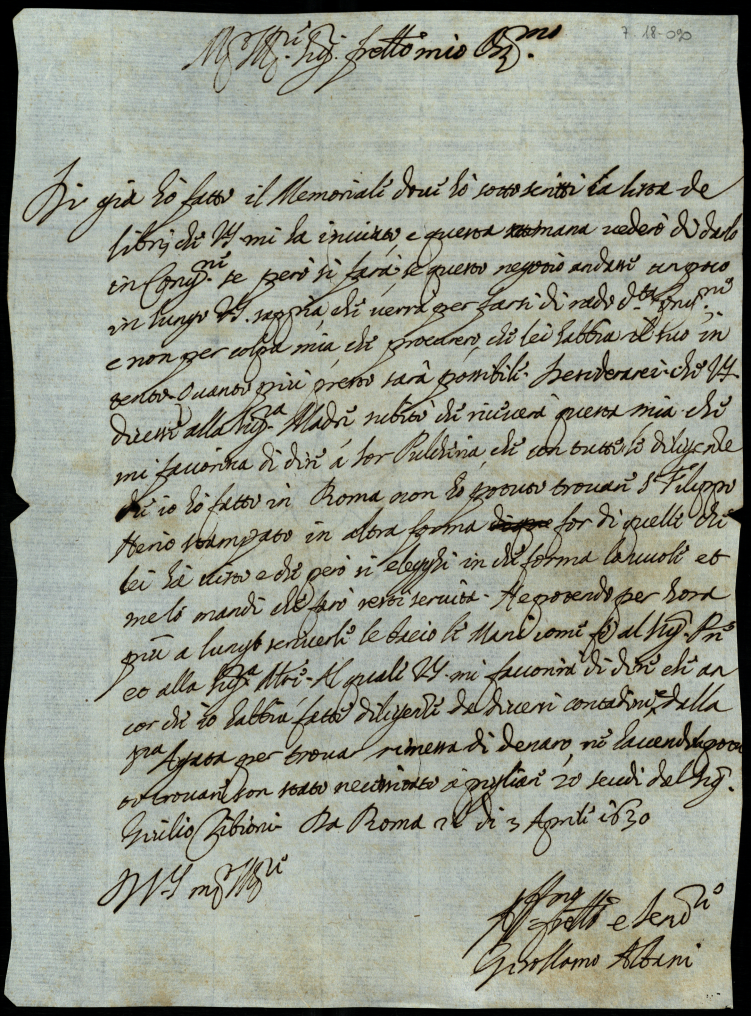 7-18-090
Sig. fratello mio
Di già hò fatto il Memoriale dove hò sottoscritti la lista de
libri che VS. mi ha inviato, e questa settimana vederò di darlo
in Cong.ne se però si farà, se questo negotio andasse un poco
in lungo VS. sappia che verrà per farsi di rado d.ta Cong.ne
e non per colpa mia, che procurerò che lei habbia il suo in
tento quanto più presto sarà possibile. Desiderarei che VS.
dicesse alla Sig.ra Madre subito che riceverà questa mia che
mi favorirà di dire à Sor Pulcheria, che con tutte le diligenze
che io hò fatto in Roma non hò potuto trovare S. Filippo
Nerio stampato in altra forma for di quelli che
lei hà visto e che però si elegghi in che forma lo vuole et
me lo mandi che farò resti servita. Ne potendo per hora
più a lungo scriverli le bacio le Mani come fò al Sig.
et alla Sig.ra Al quale VS. mi favorirà di dire che an
cor che io habbia fatte diligenze da diversi contadini dalla
per trovar rimessa di denaro, nè havendo potu
to trovare son stato necessitato à pigliare 20 scudi dal Sig.
Giulio Da Roma li di 3 Aprile 1630
Di VS
Aff.mo fratello e Ser.re
Girollamo Albani